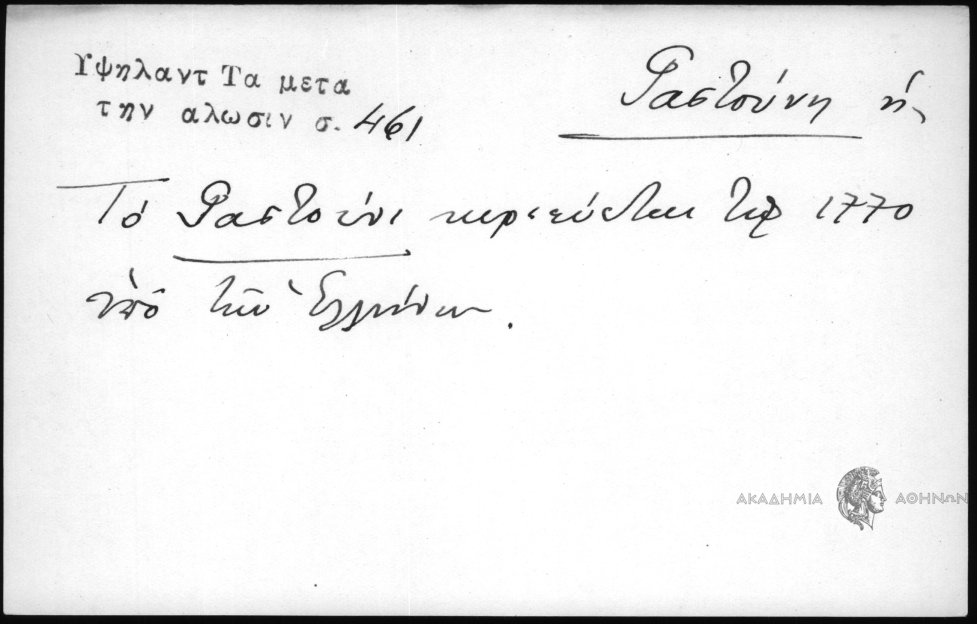 Υψηλαντ Τα μετα
την αλωσιν σ. 461
Γαστούνη ἡ,
Τό Γαστούνι κυριεύεται τῷ 1770
ὑπό τῶν Ἑλλήνων.
ΑΚΑΔΗΜΙΑ ΑΘΗΝΩΝ